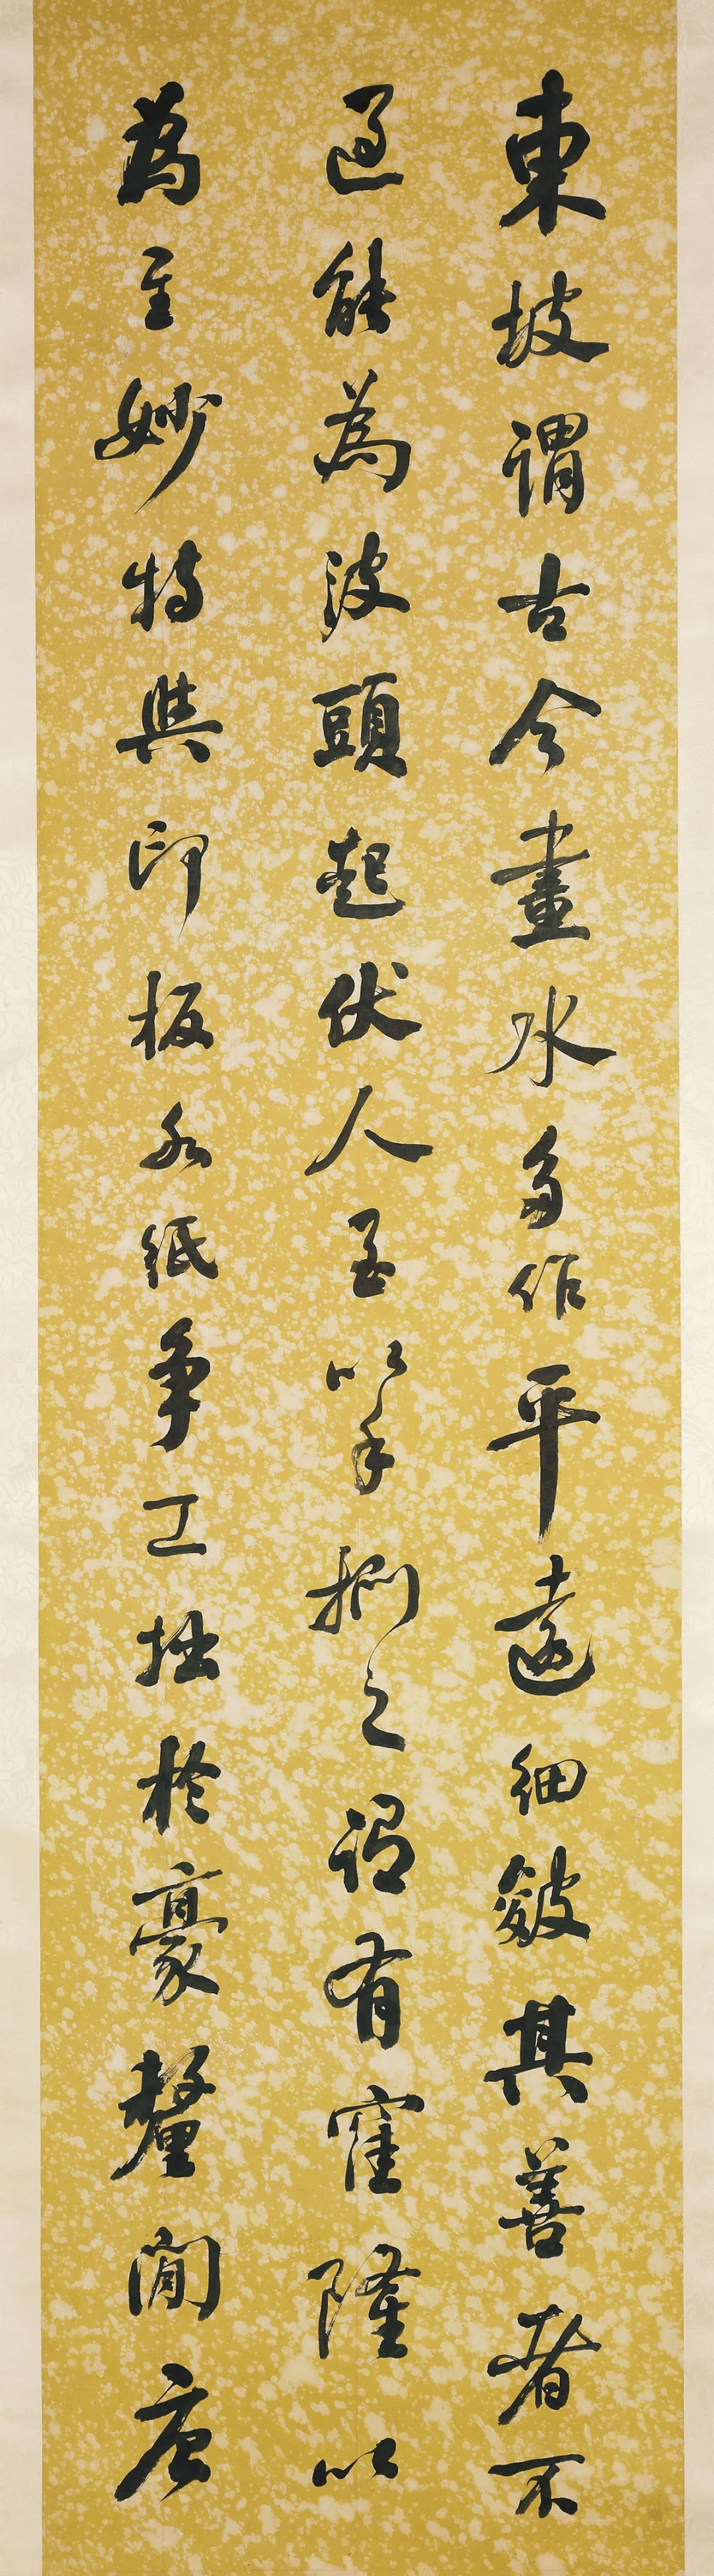 東坡謂古今畫水多作平遠細皴其善者不
過能為波頭起伏人至以手捫之謂有窪隆以
為至妙特與印板水紙爭工拙於豪釐間唐